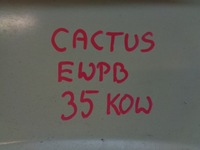 CACTUS
EWPB
35 KOW